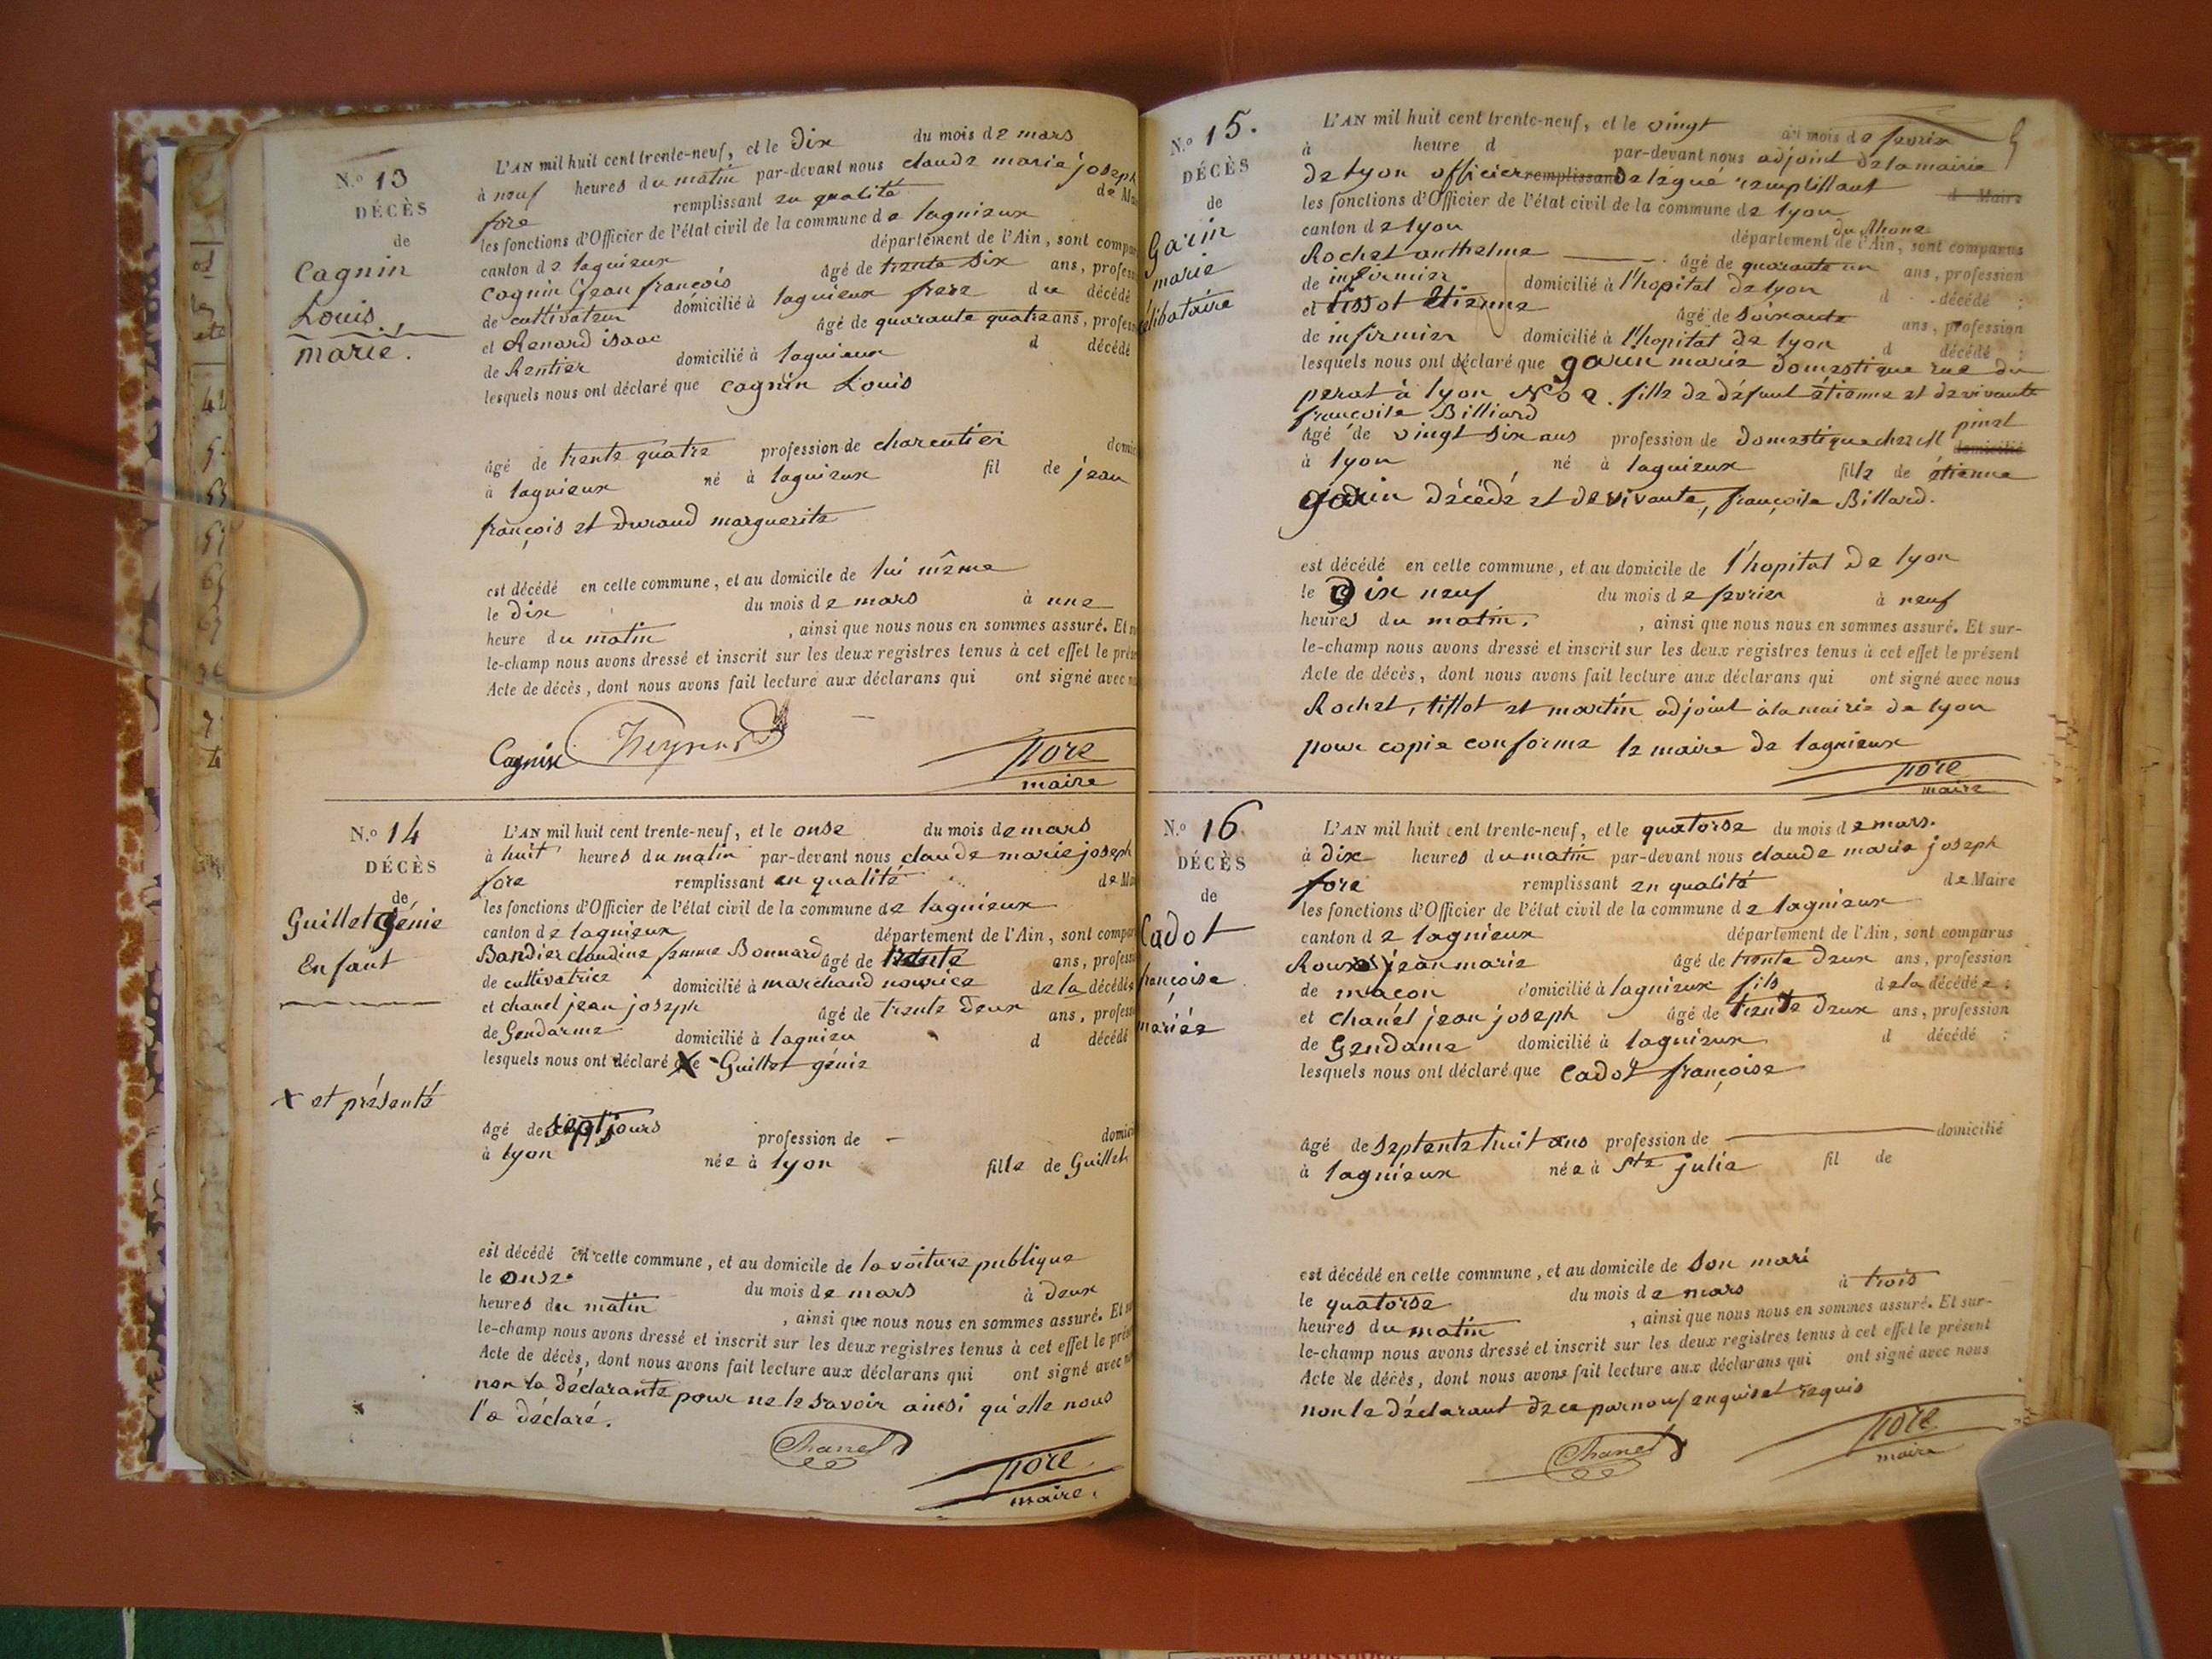 N.o 13
DÉCÈS
de
Cagnin
Louis
marié.
L'AN mil huit cent trente-neuf, et le dix du mois de mars
à neuf heures du matin par-devant nous claude marie joseph
fore remplissant en qualité de Ma
les fonctions d'Officier de l'état civil de la commune de lagnieux
canton de lagnieux département de l'Ain, sont compar
Cagnin jean françois âgé de trente six ans, profess
de cultivateur domicilié à lagnieux frere du décédé
et Renard isaac âgé de quarante quatre ans, profess
de Rentier domicilié à lagnieux d décédé
lesquels nous ont déclaré que cagnin Louis
âgé de trente quatre profession de charentier domic
à lagnieux né à lagnieux fil de jean
françois et Durand marguerite
est décédé en celle commune, et au domicile de lui même
le dix du mois de mars à une
heure du matin , ainsi que nous nous en sommes assuré. Et
le-champ nous avons dressé et inscrit sur les deux registres tenus à cet effet le prés
Acte de décès, dont nous avons fait lecture aux déclarans qui ont signé avec
Cagnin fore
maire
N.o 14
DÉCÈS
de
Guillet génie
Enfant
X et présenté
L'AN mil huit cent trente-neuf, et le onse du mois de mars
à huit heures du matin par-devant nous claude marie joseph
fore remplissant en qualité de Ma
les fonctions d'Officier de l'état civil de la commune de lagnieux
canton de lagnieux département de l'Ain, sont compar
Bandier claudine femme Bonnard âgé de trente ans, profess
de cultivatrice domicilié à marchand nourice de la décédée
et chanel jean joseph âgé de trente Deux ans, profess
de Gendarme domicilié à lagnieu d décédé
lesquels nous ont déclaré X que Guillet génie
âgé de sept jours profession de - domic
à lyon née à lyon fille de Guillet
est décédé en celle commune, et au domicile de la voiture publique
le onse du mois de mars à deux
heures du matin , ainsi que nous nous en sommes assuré. Et
le-champ nous avons dressé et inscrit sur les deux registres tenus à cet effet le prés
Acte de décès, dont nous avons fait lecture aux déclarans qui ont signé avec
non la déclarante pour ne le savoir ainsi qu'elle nous
l'a déclaré.
Chanel fore
maire.
N.o 15.
DÉCÈS
de
Garin
marie
célibataire
L'AN mil huit cent trente-neuf, et le vingt du mois de fevrier
à heure d par-devant nous adjoint de la mairie
de lyon officier remplissant délégué remplissant d Maire
les fonctions d'Officier de l'état civil de la commune de lyon
canton de lyon du Rhone département de l'Ain, sont comparus
Rochet anthelme âgé de quarante un ans, profession
de infirmier domicilié à l'hopital de lyon d décédé :
et tissot Etienne âgé de soixante ans, profession
de infirmier domicilié à l'hopital de lyon d décédé :
lesquels nous ont déclaré que garin marie domestique rue du
perat à lyon No 2. fille de défunt étienne et de vivante
françoise Billiard
âgé de vingt six ans profession de domestique chez M pinet domicilié
à lyon né à lagnieux fille de étienne
garin décédé et de vivante, françoise Billard.
est décédé en celle commune, et au domicile de l'hopital de lyon
le Dix neuf du mois de fevrier à neuf
heures du matin. , ainsi que nous nous en sommes assuré. Et sur-
le-champ nous avons dressé et inscrit sur les deux registres tenus à cet effet le présent
Acte de décès, dont nous avons fait lecture aux déclarans qui ont signé avec nous
Rochet, tissot et martin adjoint à la mairie de lyon
pour copie conforme le maire de lagnieux
fore
maire
N.o 16.
DÉCÈS
de
Cadot
françoise
mariée
L'AN mil huit cent trente-neuf, et le quatorse du mois de mars.
à dix heures du matin par-devant nous claude marie joseph
fore remplissant en qualité de Maire
les fonctions d'Officier de l'état civil de la commune de lagnieux
canton de lagnieux département de l'Ain, sont comparus
Roux jean marie âgé de trente deux ans, profession
de maçon domicilié à lagnieux fils de la décédée :
et chanel jean joseph âgé de trente deux ans, profession
de Gendame domicilié à lagnieux d décédé :
lesquels nous ont déclaré que Cadot françoise
âgé de septente huit ans profession de domicilié
à lagnieux née à Ste julie fil de
est décédé en celle commune, et au domicile de son mari
le quatorse du mois de mars à trois
heures du matin , ainsi que nous nous en sommes assuré. Et sur-
le-champ nous avons dressé et inscrit sur les deux registres tenus à cet effet le présent
Acte de décès, dont nous avons fait lecture aux déclarans qui ont signé avec nous
non le déclarant de ce par nous enquis et requis
Chanel fore
maire